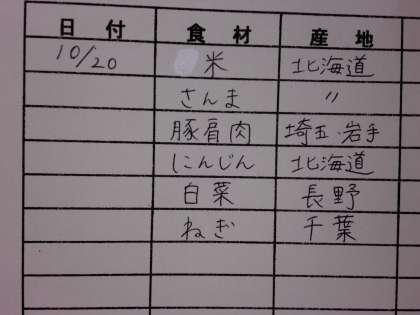 日付 食材 産地
10/20 米 北海道
さんま 〃
豚肩肉 埼玉・岩手
にんじん 北海道
白菜 長野
ねぎ 千葉